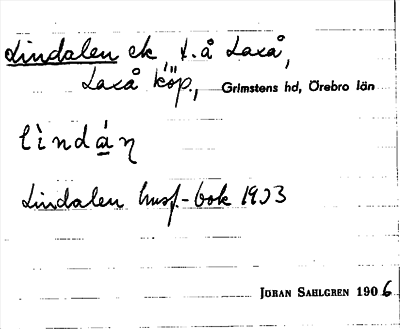 Lindalen ek, t.å Laxå,
Laxå köp., Grimstens hd, Örebro län
lìndá̲ƞ
Lindalen husf.-bok 1933
JOHAN SAHLGREN 1906